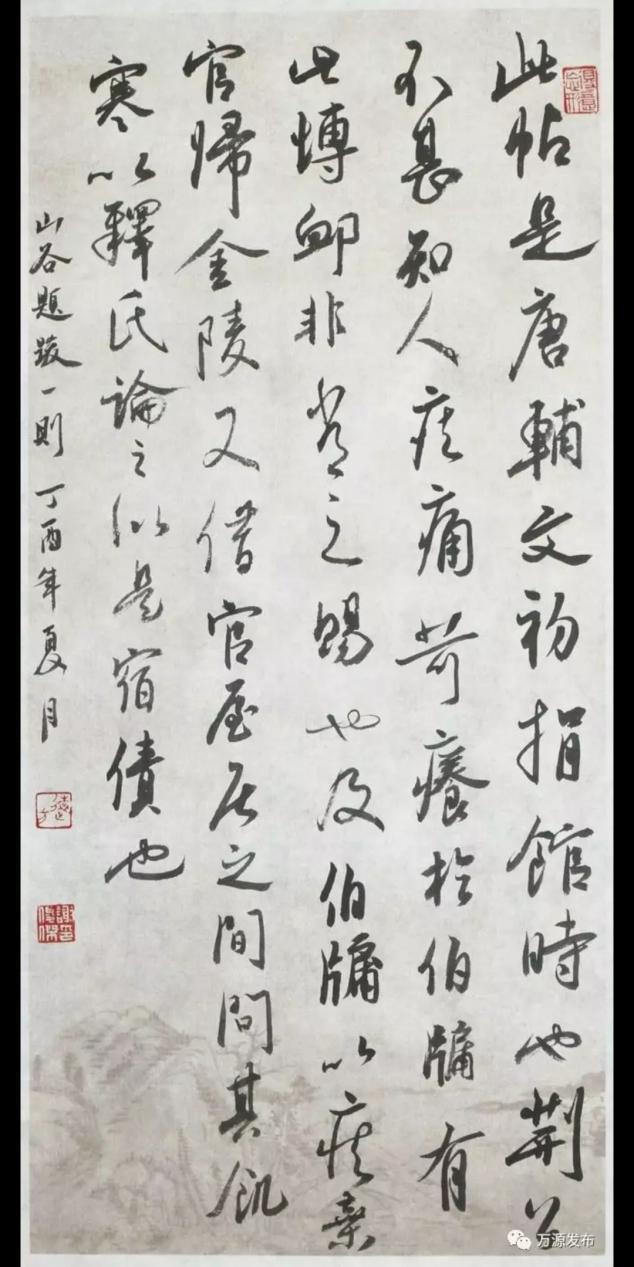 此帖是唐輔文初捐館時也荆公
不甚知人疾痛苛癢於伯牖有
此愽卹非常之賜也及伯牖以疾棄
官歸金陵又借官屋居之間問其飢
寒以釋氏論之似是宿債也
山谷題跋一則 丁酉年夏月
万源发布